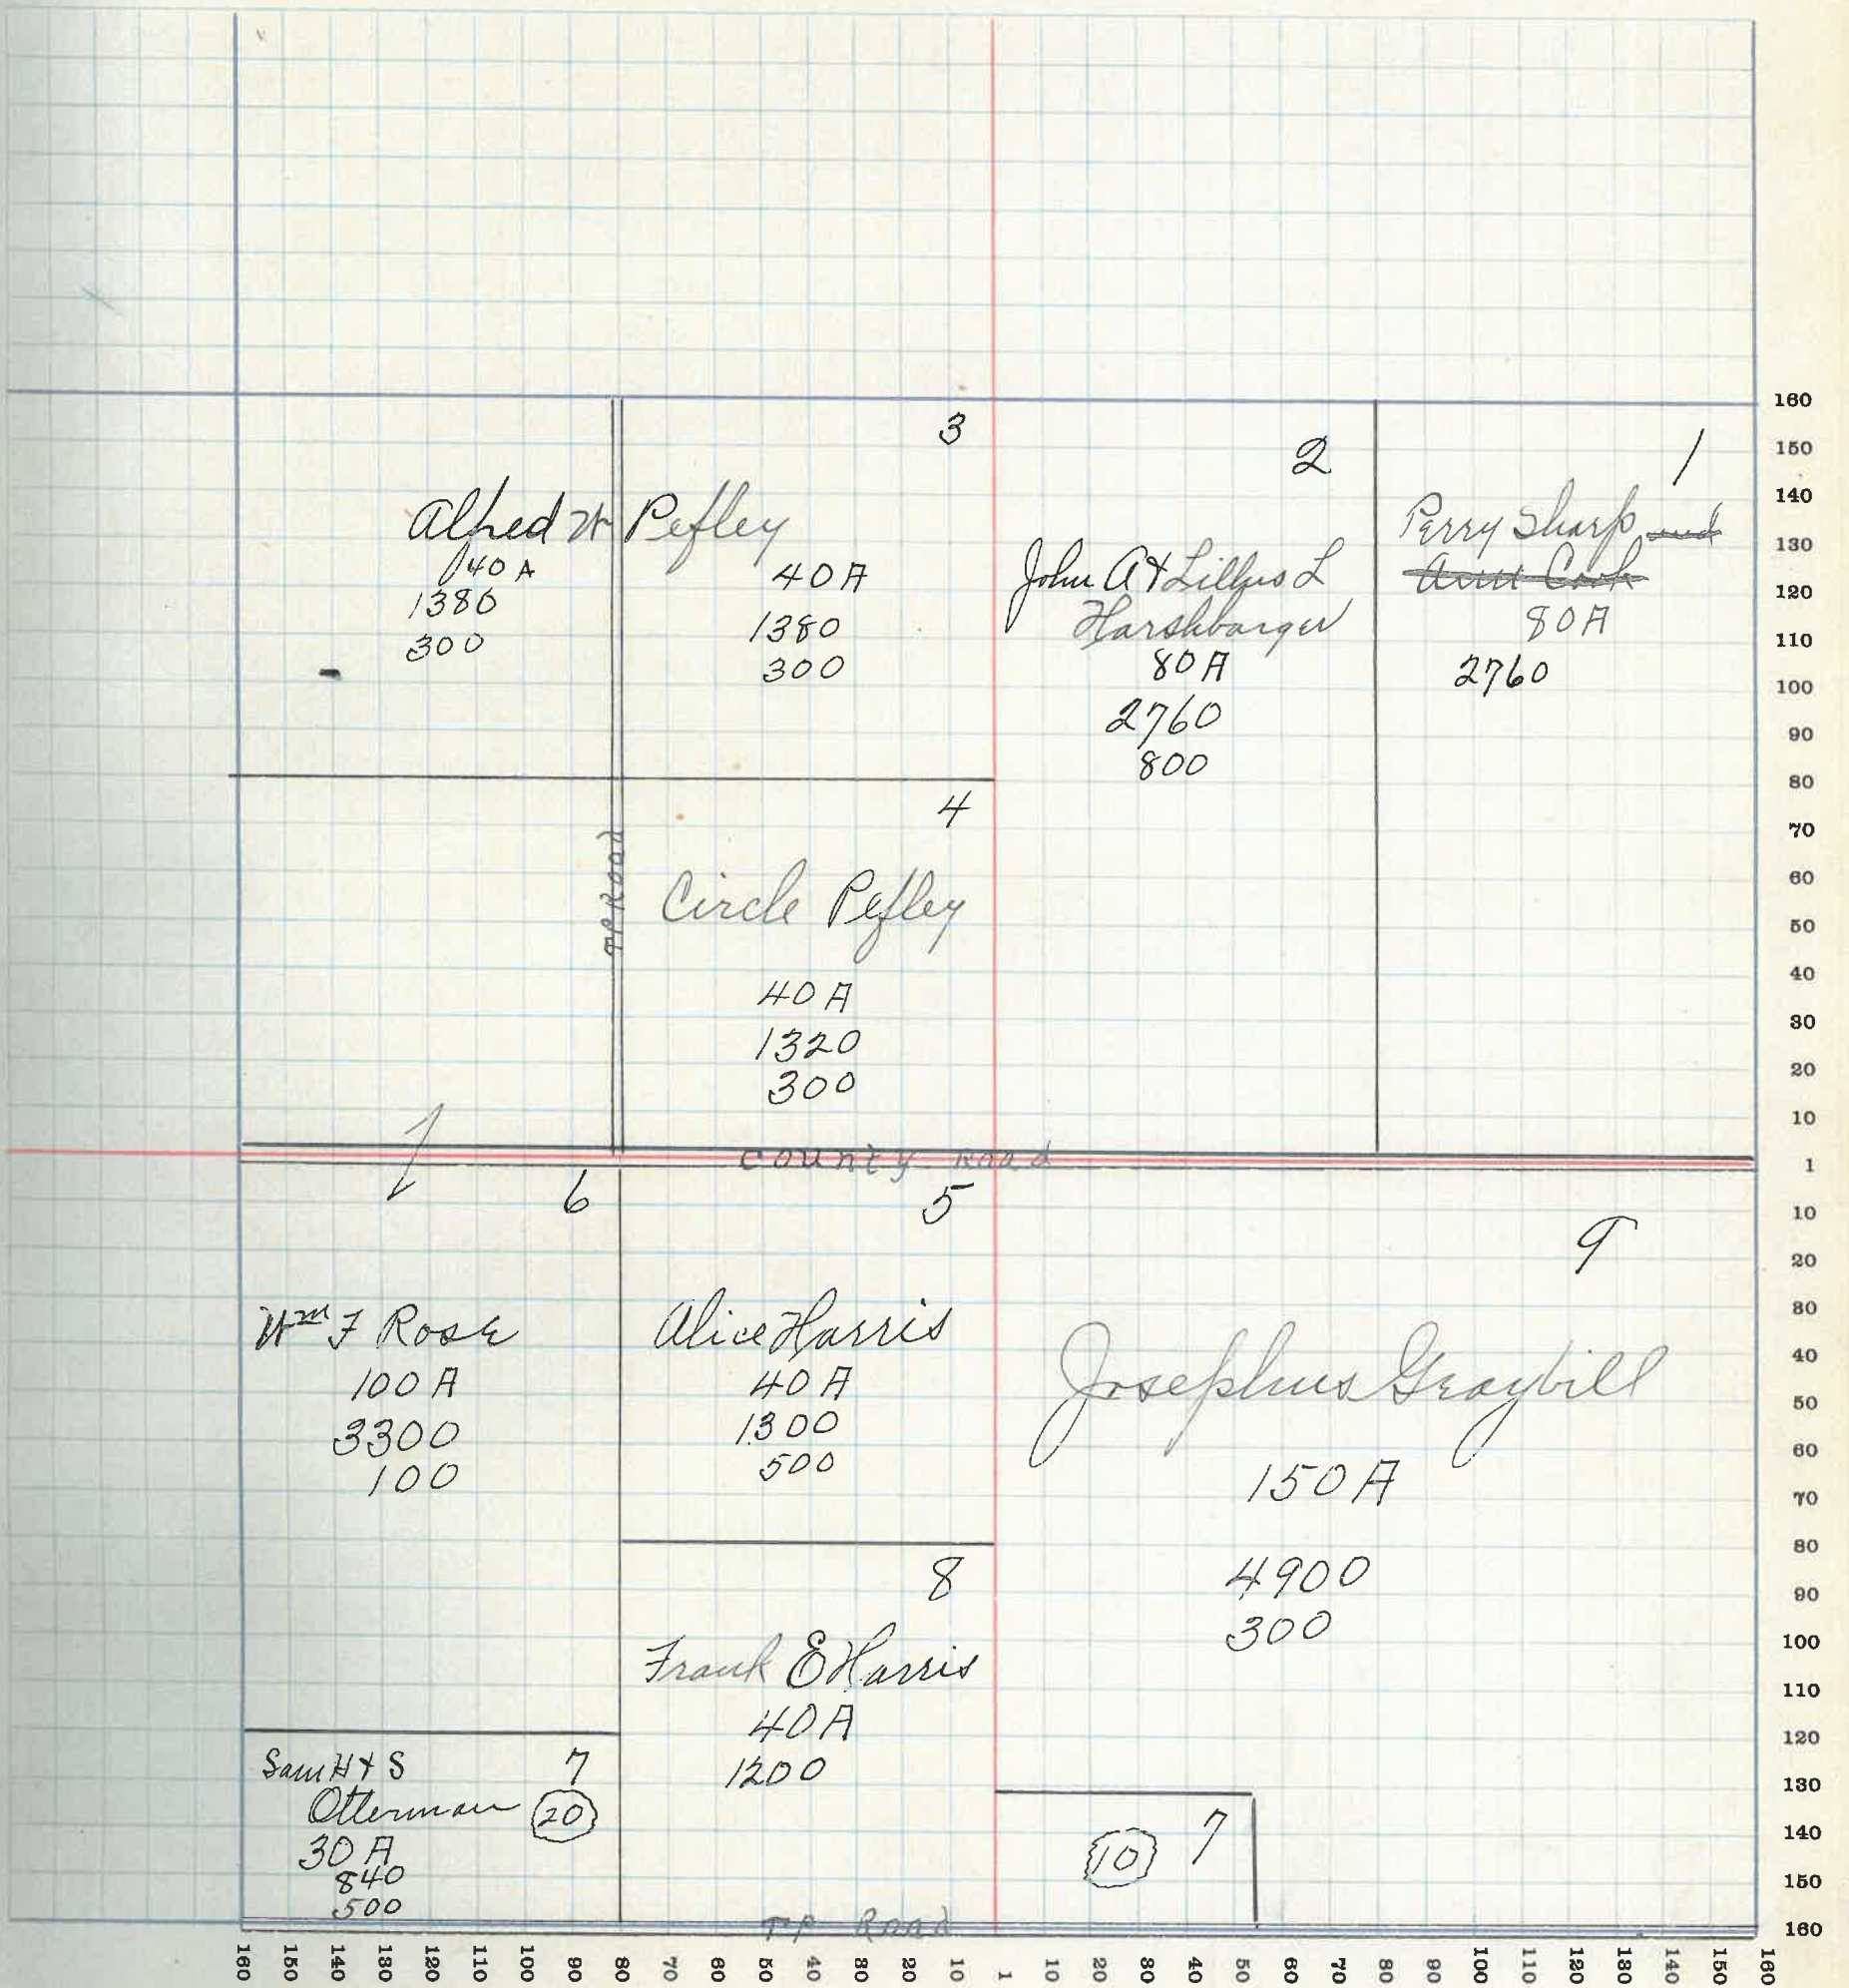 3
Alfred W Pefley
40 A
1380
300
40 A
1380
300
2
John A & Lillus L
Harshbarger
80 A
2760
800
1
Perry Sharp and
Ann Cook
80 A
2760
4
Circle Pefley
40 A
1320
300
TP Road
County Road
6
Wm F Rose
100 A
3300
100
5
Alice Harris
40 A
1300
500
9
Josephus Graybill
150 A
4900
300
8
Frank E Harris
40 A
1200
Sam H & S 7
Otterman 20
30 A
840
500
10 7
TP Road
160
150
140
130
120
110
100
90
80
70
60
50
40
30
20
10
1
10
20
30
40
50
60
70
80
90
100
110
120
130
140
150
160
160 150 140 130 120 110 100 90 80 70 60 50 40 30 20 10 1 10 20 30 40 50 60 70 80 90 100 110 120 130 140 150 160